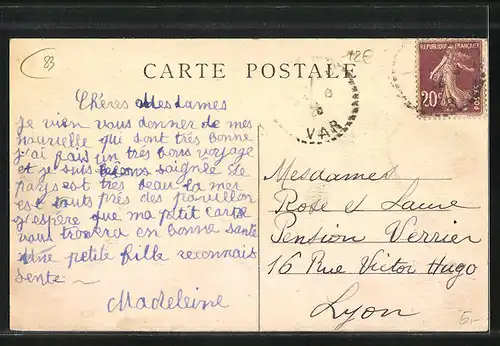 83
12€
CARTE POSTALE
REPUBLIQUE FRANÇAISE
20c
POSTES
8
VAR
Chères Mesdames
je vien vous donner de mes
nouvelle qui sont très bonne
j'ai fais un très bons voyage
et je suis soignée le
pays est très beau la mer
est touts près des pavillon
j'espère que ma ptit carte
vous trouvera en bonne santé
Une petite fille reconnais
sente ~
Madeleine
Mesdames
Rose et Laure
Pension Verrier
16 Rue Victor Hugo
Lyon
5,-